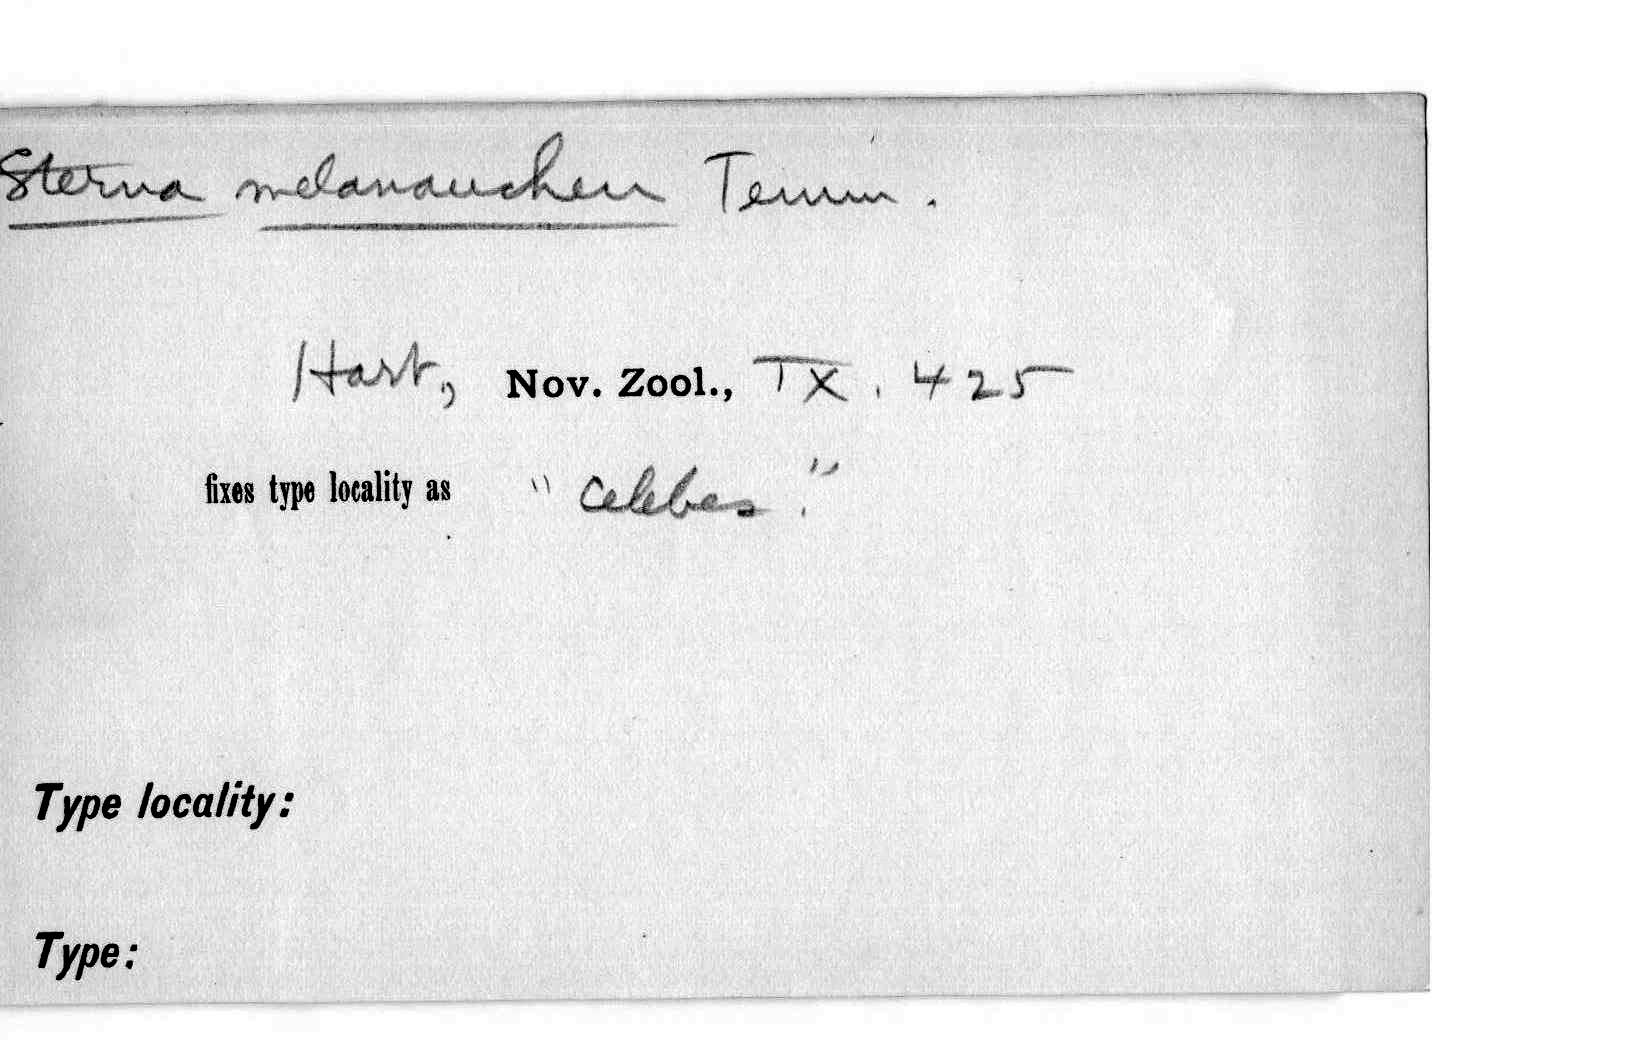 Sterna melanauchen Temm.
Hart, Nov. Zool., IX. 425
fixes type locality as "Celebes."
Type locality:
Type: